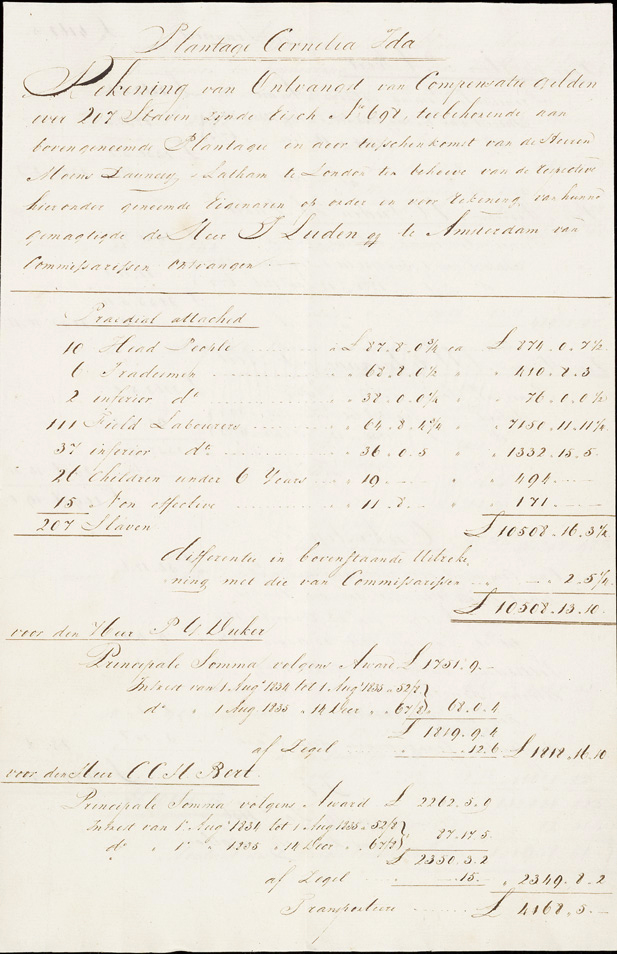 Plantage Cornelia Ida
Rekening van Ontvangst van Compensatie gelden
over 207 Slaven zynde Eisch No 698, toebehorende aan
bovengenoemde Plantagie en door tusschenkomst van de Heeren
Moens Dauncey & Latham te London ten behoeve van de respective
hieronder genoemde Eigenaren op order en voor rekening van hunne
gemagtigde de Heer J Luden te Amsterdam van
Commissarissen Ontvangen
Praedial attached
10 Head People a £ 87.8.0¾ ea £ 874.0.7½
6 Tradesmen 68.8.0½ 410.8.3
2 inferior do 38.0.0¼ 76.0.0½
111 Field Labourers 64.8.4¾ 7150.11.11¼
37 inferior do 36.0.5 1332.15.5
26 Children under 6 Years 19 494
15 Non effective 11.8 171
207 Slaven £ 10508.16.3¼
differentie in bovenstaande Uitreke
ning met die van Commissarissen 2.5¼
£ 10508.13.10
voor den Heer P G Duker
Principale Somma volgens Award £ 1751.9.-
Intrest van 1 Augt 1834 tot 1 Augt 1835 a 52/8
do 1 Aug 1835 14 Decr 67/8 68.0.4
£ 1819.9.4
af Zegel 12.6 £ 1818.16.10
voor den Heer C C H Bert
Principale Somma volgens Award £ 2262.5.0
Intrest van 1 Aug 1834 tot 1 Aug 1835 a 52/8
do 1 1835 14 Decr 67/8 87.17.5
£ 2350.3.2
af Zegel 15.- 2349.8.2
Transporteere £ 4168.5.-